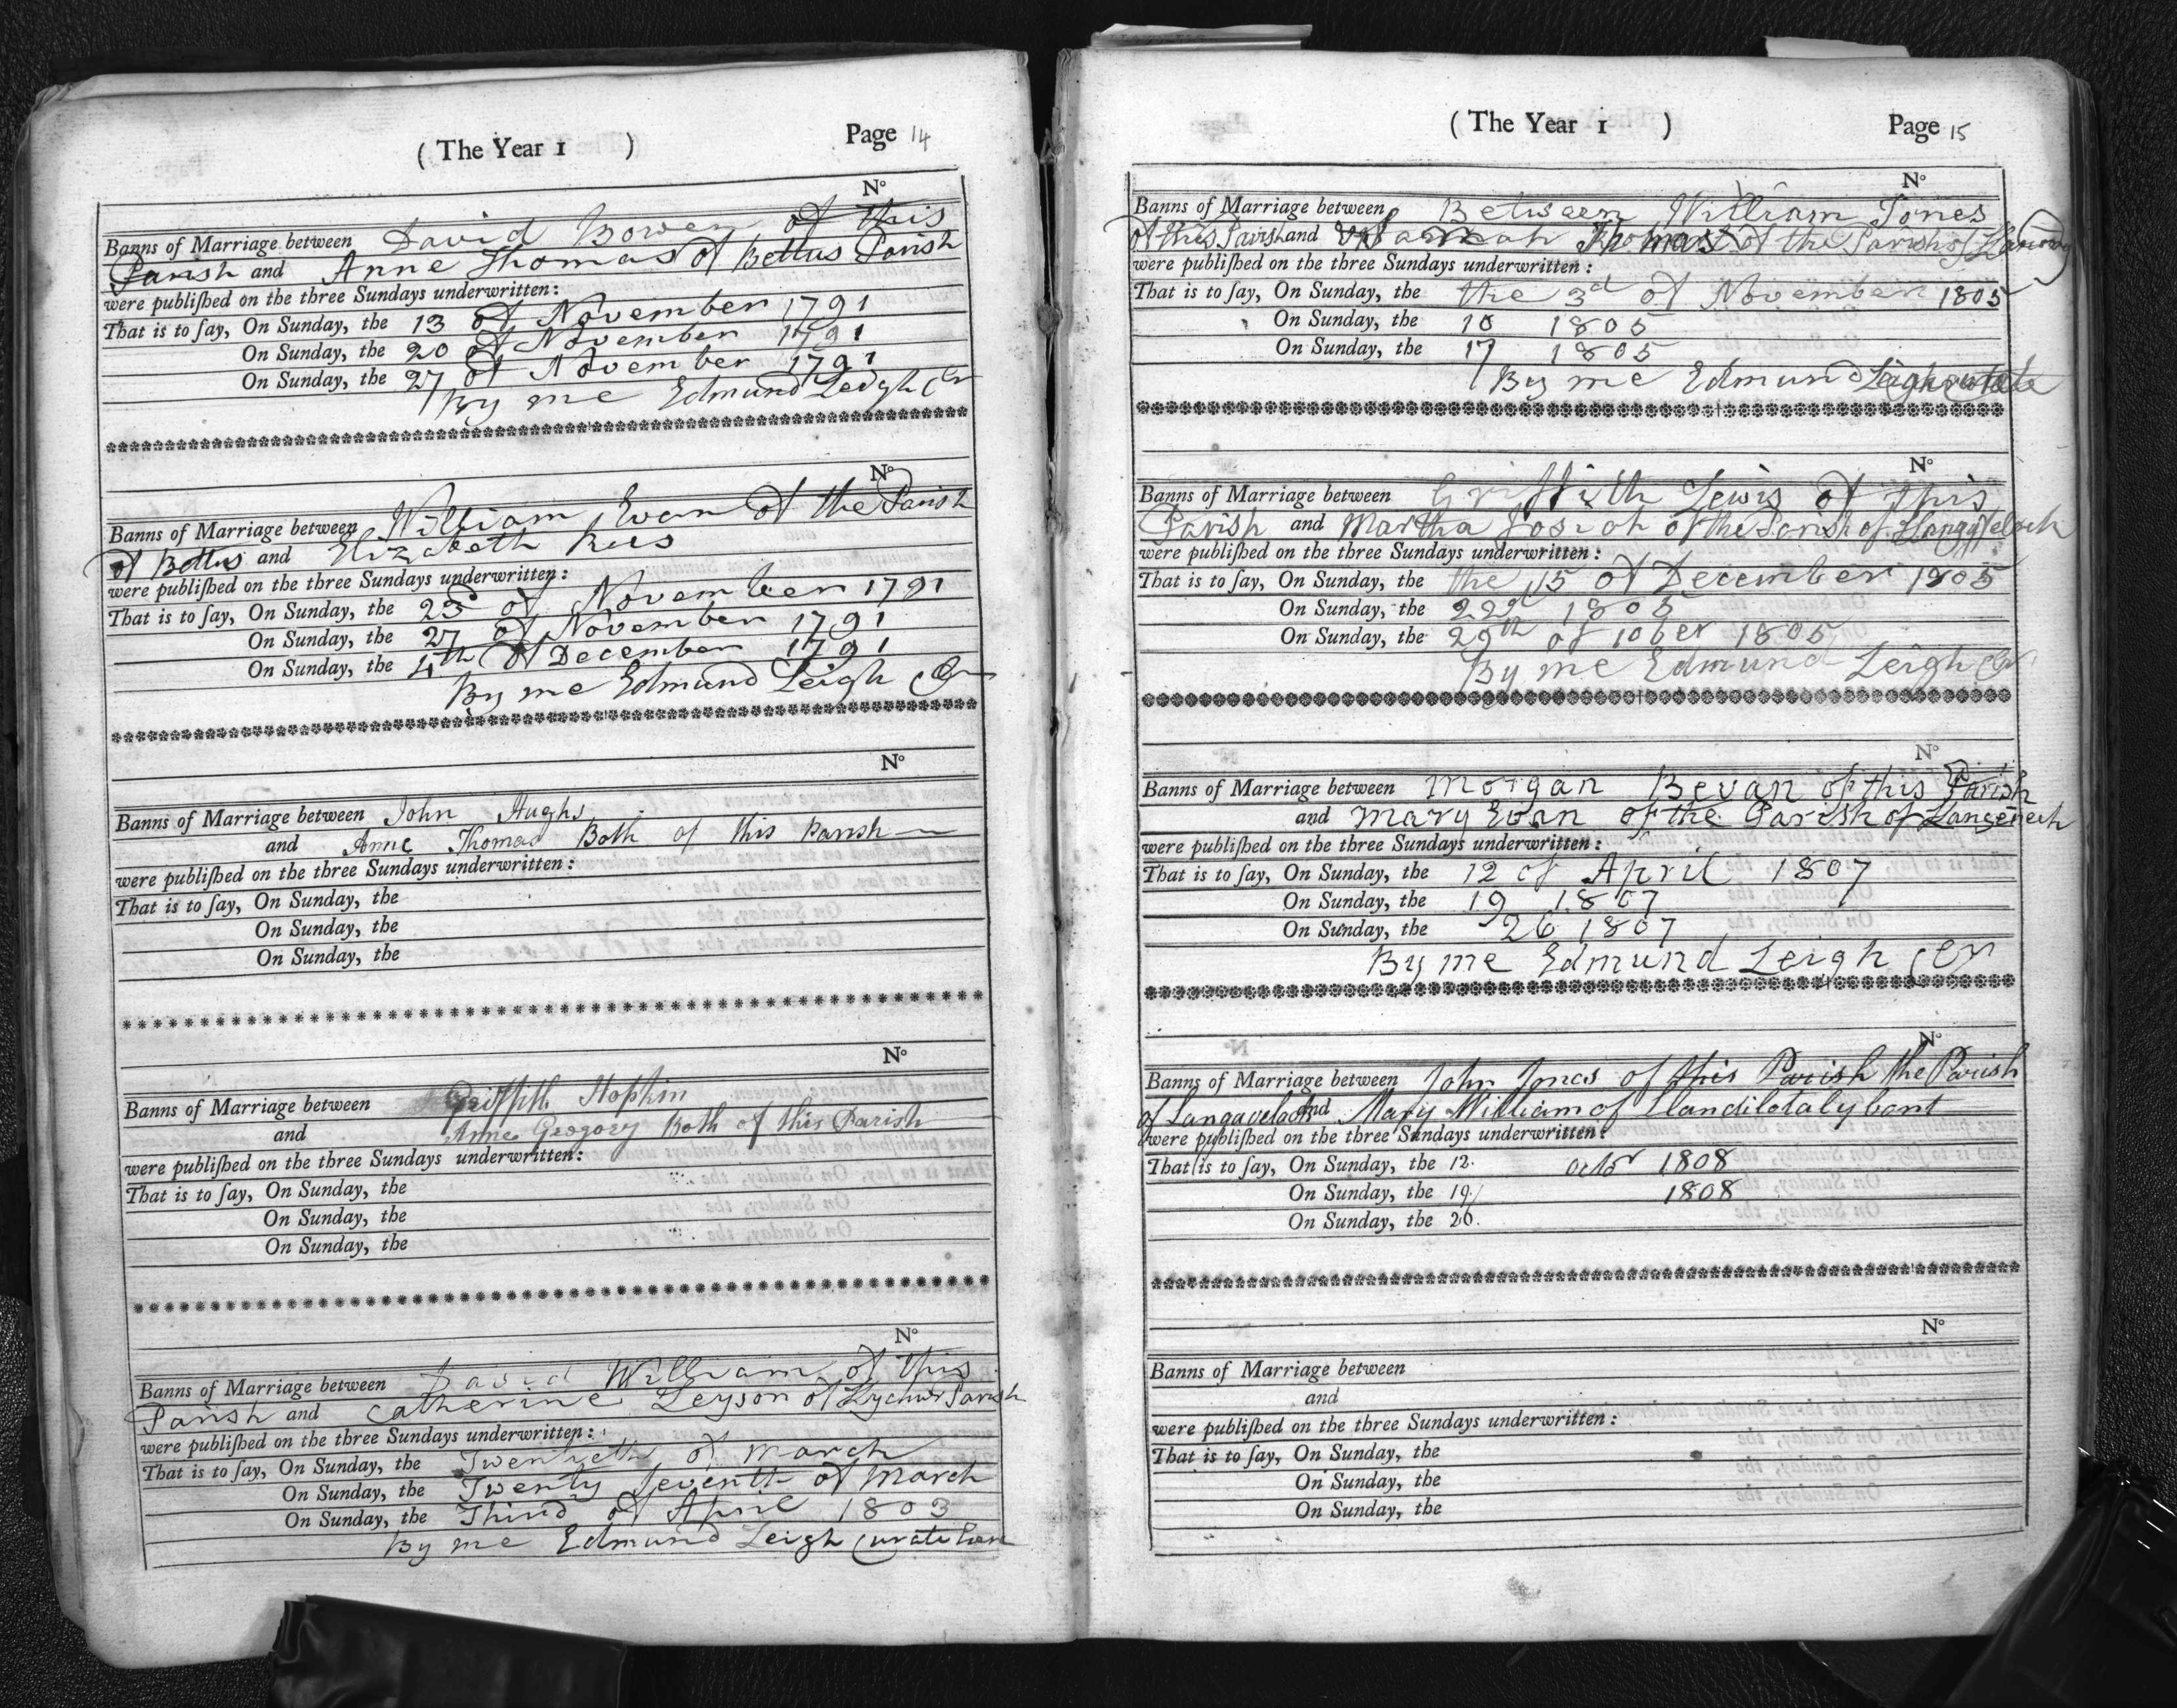 ( The Year 1 ) Page 14
N°
Banns of Marriage between David Bowen of this
Parish and Anne Thomas of Bettus Parish
were publiſhed on the three Sundays underwritten:
That is to ſay, On Sunday, the 13 of November 1791
On Sunday, the 20 of November 1791
On Sunday, the 27 of November 1791
By me Edmund Leigh Cr
N°
Banns of Marriage between William Evan of the Parish
of Bettus and Elizabeth Rees
were publiſhed on the three Sundays underwritten:
That is to ſay, On Sunday, the 23 of November 1791
On Sunday, the 27 of November 1791
On Sunday, the 4th of December 1791
By me Edmund Leigh Cr
N°
Banns of Marriage between John Hughs
and Anne Thomas Both of this Parish
were publiſhed on the three Sundays underwritten:
That is to ſay, On Sunday, the
On Sunday, the
On Sunday, the
N°
Banns of Marriage between Griffith Hopkin
and Anne Gregory Both of this Parish
were publiſhed on the three Sundays underwritten:
That is to ſay, On Sunday, the
On Sunday, the
On Sunday, the
N°
Banns of Marriage between David William of this
Parish and Catherine Leyson of Lychwr Parish
were publiſhed on the three Sundays underwritten:
That is to ſay, On Sunday, the Twentieth of March
On Sunday, the Twenty Seventh of March
On Sunday, the Third of April 1803
By me Edmund Leigh Curate
( The Year 1 ) Page 15
N°
Banns of Marriage between Between William Jones
of this Parish and Hannah Thomas of the Parish of
were publiſhed on the three Sundays underwritten:
That is to ſay, On Sunday, the the 3d of November 1805
On Sunday, the 10 1805
On Sunday, the 17 1805
By me Edmund Leigh Curate
N°
Banns of Marriage between Griffith Lewis of this
Parish and Martha Josiah of the Parish of Llangyfelach
were publiſhed on the three Sundays underwritten:
That is to ſay, On Sunday, the the 15 of December 1805
On Sunday, the 22d 1805
On Sunday, the 29th of 10ber 1805
By me Edmund Leigh Cr
N°
Banns of Marriage between Morgan Bevan of this Parish
and Mary Evan of the Parish of Langenech
were publiſhed on the three Sundays underwritten:
That is to ſay, On Sunday, the 12 of April 1807
On Sunday, the 19 1807
On Sunday, the 26 1807
By me Edmund Leigh Cr
N°
Banns of Marriage between John Jones of this Parish the Parish
of Langavelach and Mary William of Llandilotalybont
were publiſhed on the three Sundays underwritten:
That is to ſay, On Sunday, the 12. octor 1808
On Sunday, the 19. 1808
On Sunday, the 26.
N°
Banns of Marriage between
and
were publiſhed on the three Sundays underwritten:
That is to ſay, On Sunday, the
On Sunday, the
On Sunday, the